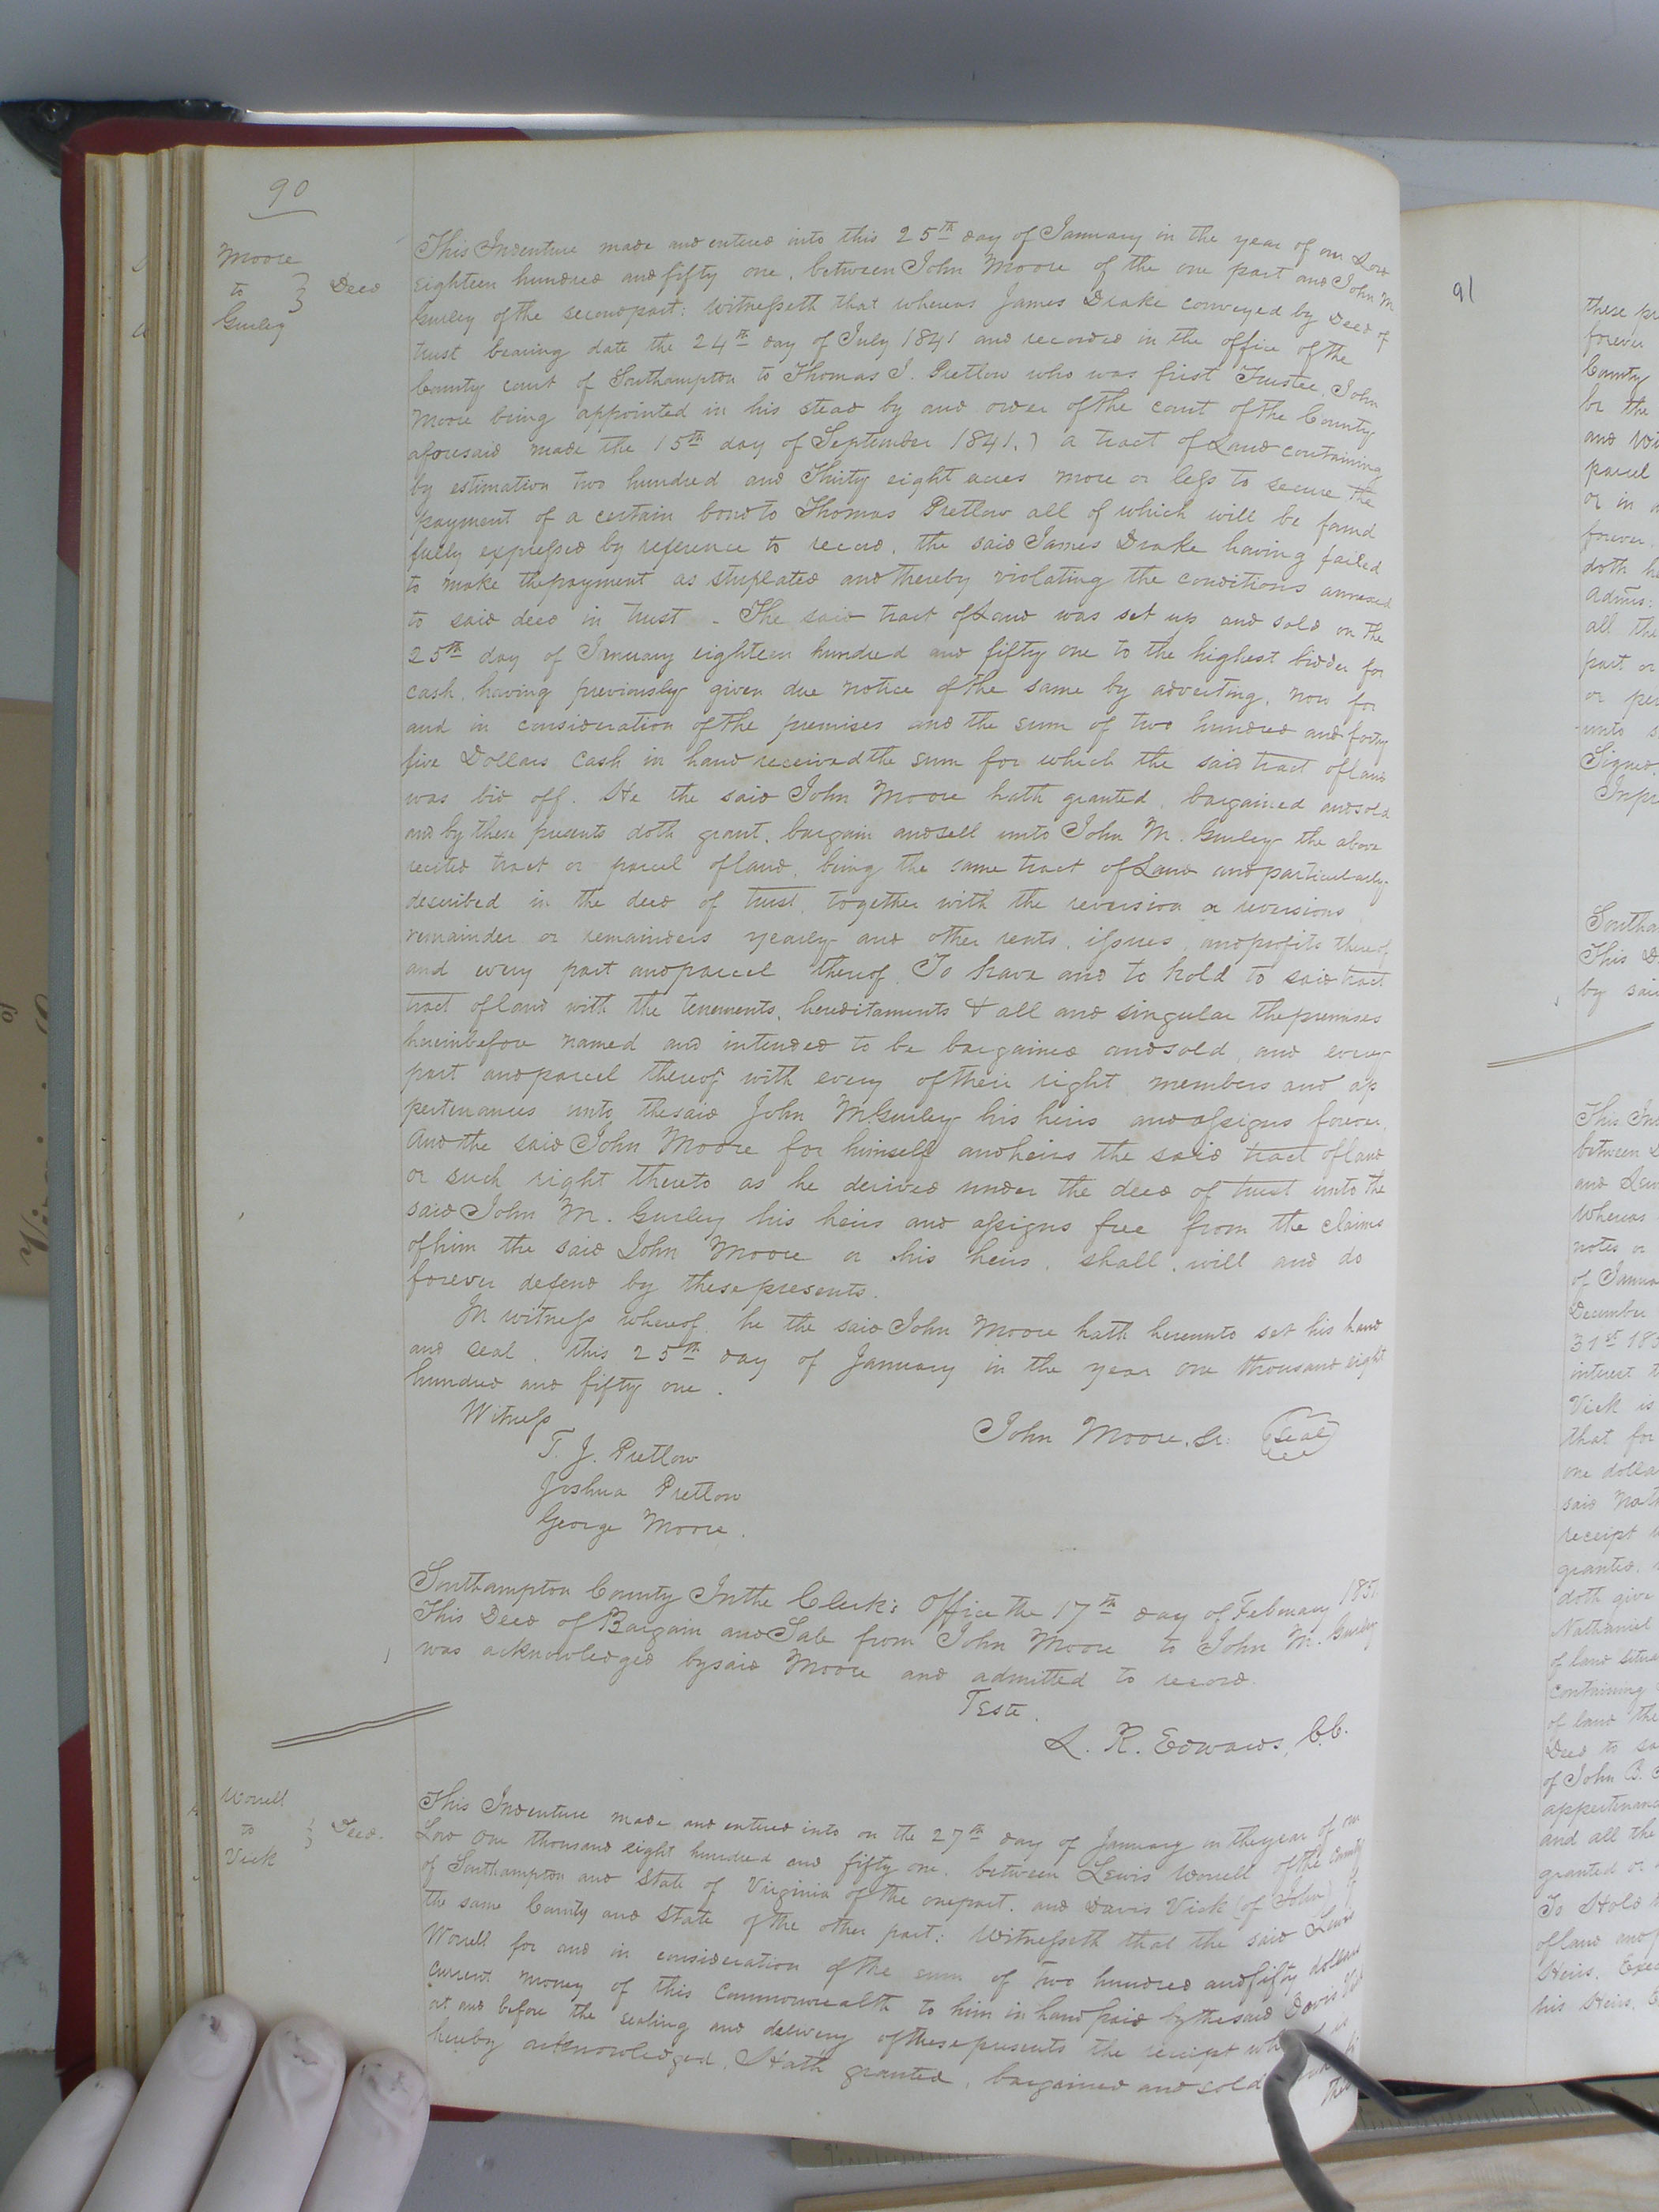 90
Moore
to } Deed
Gurley
This Indenture made and entered into this 25th day of January in the year of our Lord
eighteen hundred and fifty one, between John Moore of the one part and John M
Gurley of the second part: Witnesseth that whereas James Drake conveyed by Deed of
trust bearing date the 24th day of July 1841 and recorded in the office of the
County court of Southampton to Thomas J. Pretlow who was first Trustee, John
Moore being appointed in his stead by and order of the court of the County
aforesaid made the 15th day of September 1841,) a tract of Land containing
by estimation two hundred and Thirty eight acres more or less to secure the
payment of a certain bond to Thomas Pretlow all of which will be found
fully expressed by reference to record, the said James Drake having failed
to make the payment as stuplated and thereby violating the conditions annexed
to said deed in trust - The said tract of Land was set up and sold on the
25th day of January eighteen hundred and fifty one to the highest bidder for
cash, having previously given due notice of the same by adverting, now for
and in consideration of the premises and the sum of two hundred and forty
five Dollars cash in hand received the sum for which the said tract of land
was bid off. He the said John Moore hath granted, bargained and sold
and by these presents doth grant, bargain and sell unto John M. Gurley the above
recited tract or parcel of land, being the same tract of Land and particularly
described in the deed of trust, together with the reversion or reversions
remainder or remainders yearly and other rents, issues, and profits thereof
and every part and parcel thereof. To have and to hold to said tract
tract of land with the tenements, hereditaments & all and singular the premises
hereinbefore named and intended to be bargained and sold, and every
part and parcel thereof with every of their right members and ap
pertenances unto the said John M. Gurley his heirs and assigns forever.
And the said John Moore for himself and heirs the said tract of land
or such right thereto as he derived under the deed of trust unto the
said John M. Gurley his heirs and assigns free from the claims
of him the said John Moore or his heirs, shall, will and do
forever defend by these presents.
In witness whereof, he the said John Moore hath hereunto set his hand
and seal, this 25th day of January in the year one thousand eight
hundred and fifty one.
Witness
John Moore, Sr. Seal
T. J. Pretlow
Joshua Pretlow
George Moore.
Southampton County In the Clerk's Office the 17th day of February 185
This Deed of Bargain and Sale from John Moore to John M. Gurley
was acknowledged by said Moore and admitted to record.
Teste.
L. R. Edwards, C.C.
Worrell
to } Deed.
Vick
This Indenture made and entered into on the 27th day of January in the year of our
Lord one thousand eight hundred and fifty one, between Lewis Worrell of the County
of Southampton and State of Virginia of the one part, and Davis Vick (of John) of
the same County and State of the other part: Witnesseth that the said Lewis
Worrell for and in consideration of the sum of two hundred and fifty dollars
current money of this Commonwealth to him in hand paid by the said Davis Vick
at and before the sealing and delivery of these presents the receipt
hereby acknowledged, Hath granted, bargained and sold
91
these
forever
County
be the
and
parcel
or in
forever.
doth
Admrs:
all the
part or
or
unto
Signed,
Southa
This D
by said
This In
between
and
Whereas
notes or
of Janua
December
31st 185
interest
Vick is
that for
one dolla
said Nat
receipt
granted,
doth give
Nathaniel
of land situa
containing
of land the
Deed to
of John B.
appertenan
and all the
granted or
To Hold
of land and
Heirs, Exec
his Heirs,